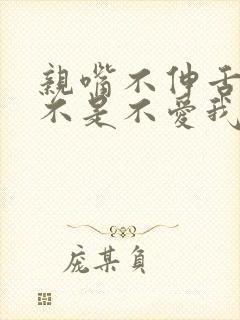 親嘴不伸舌
不是不愛我
庞某負